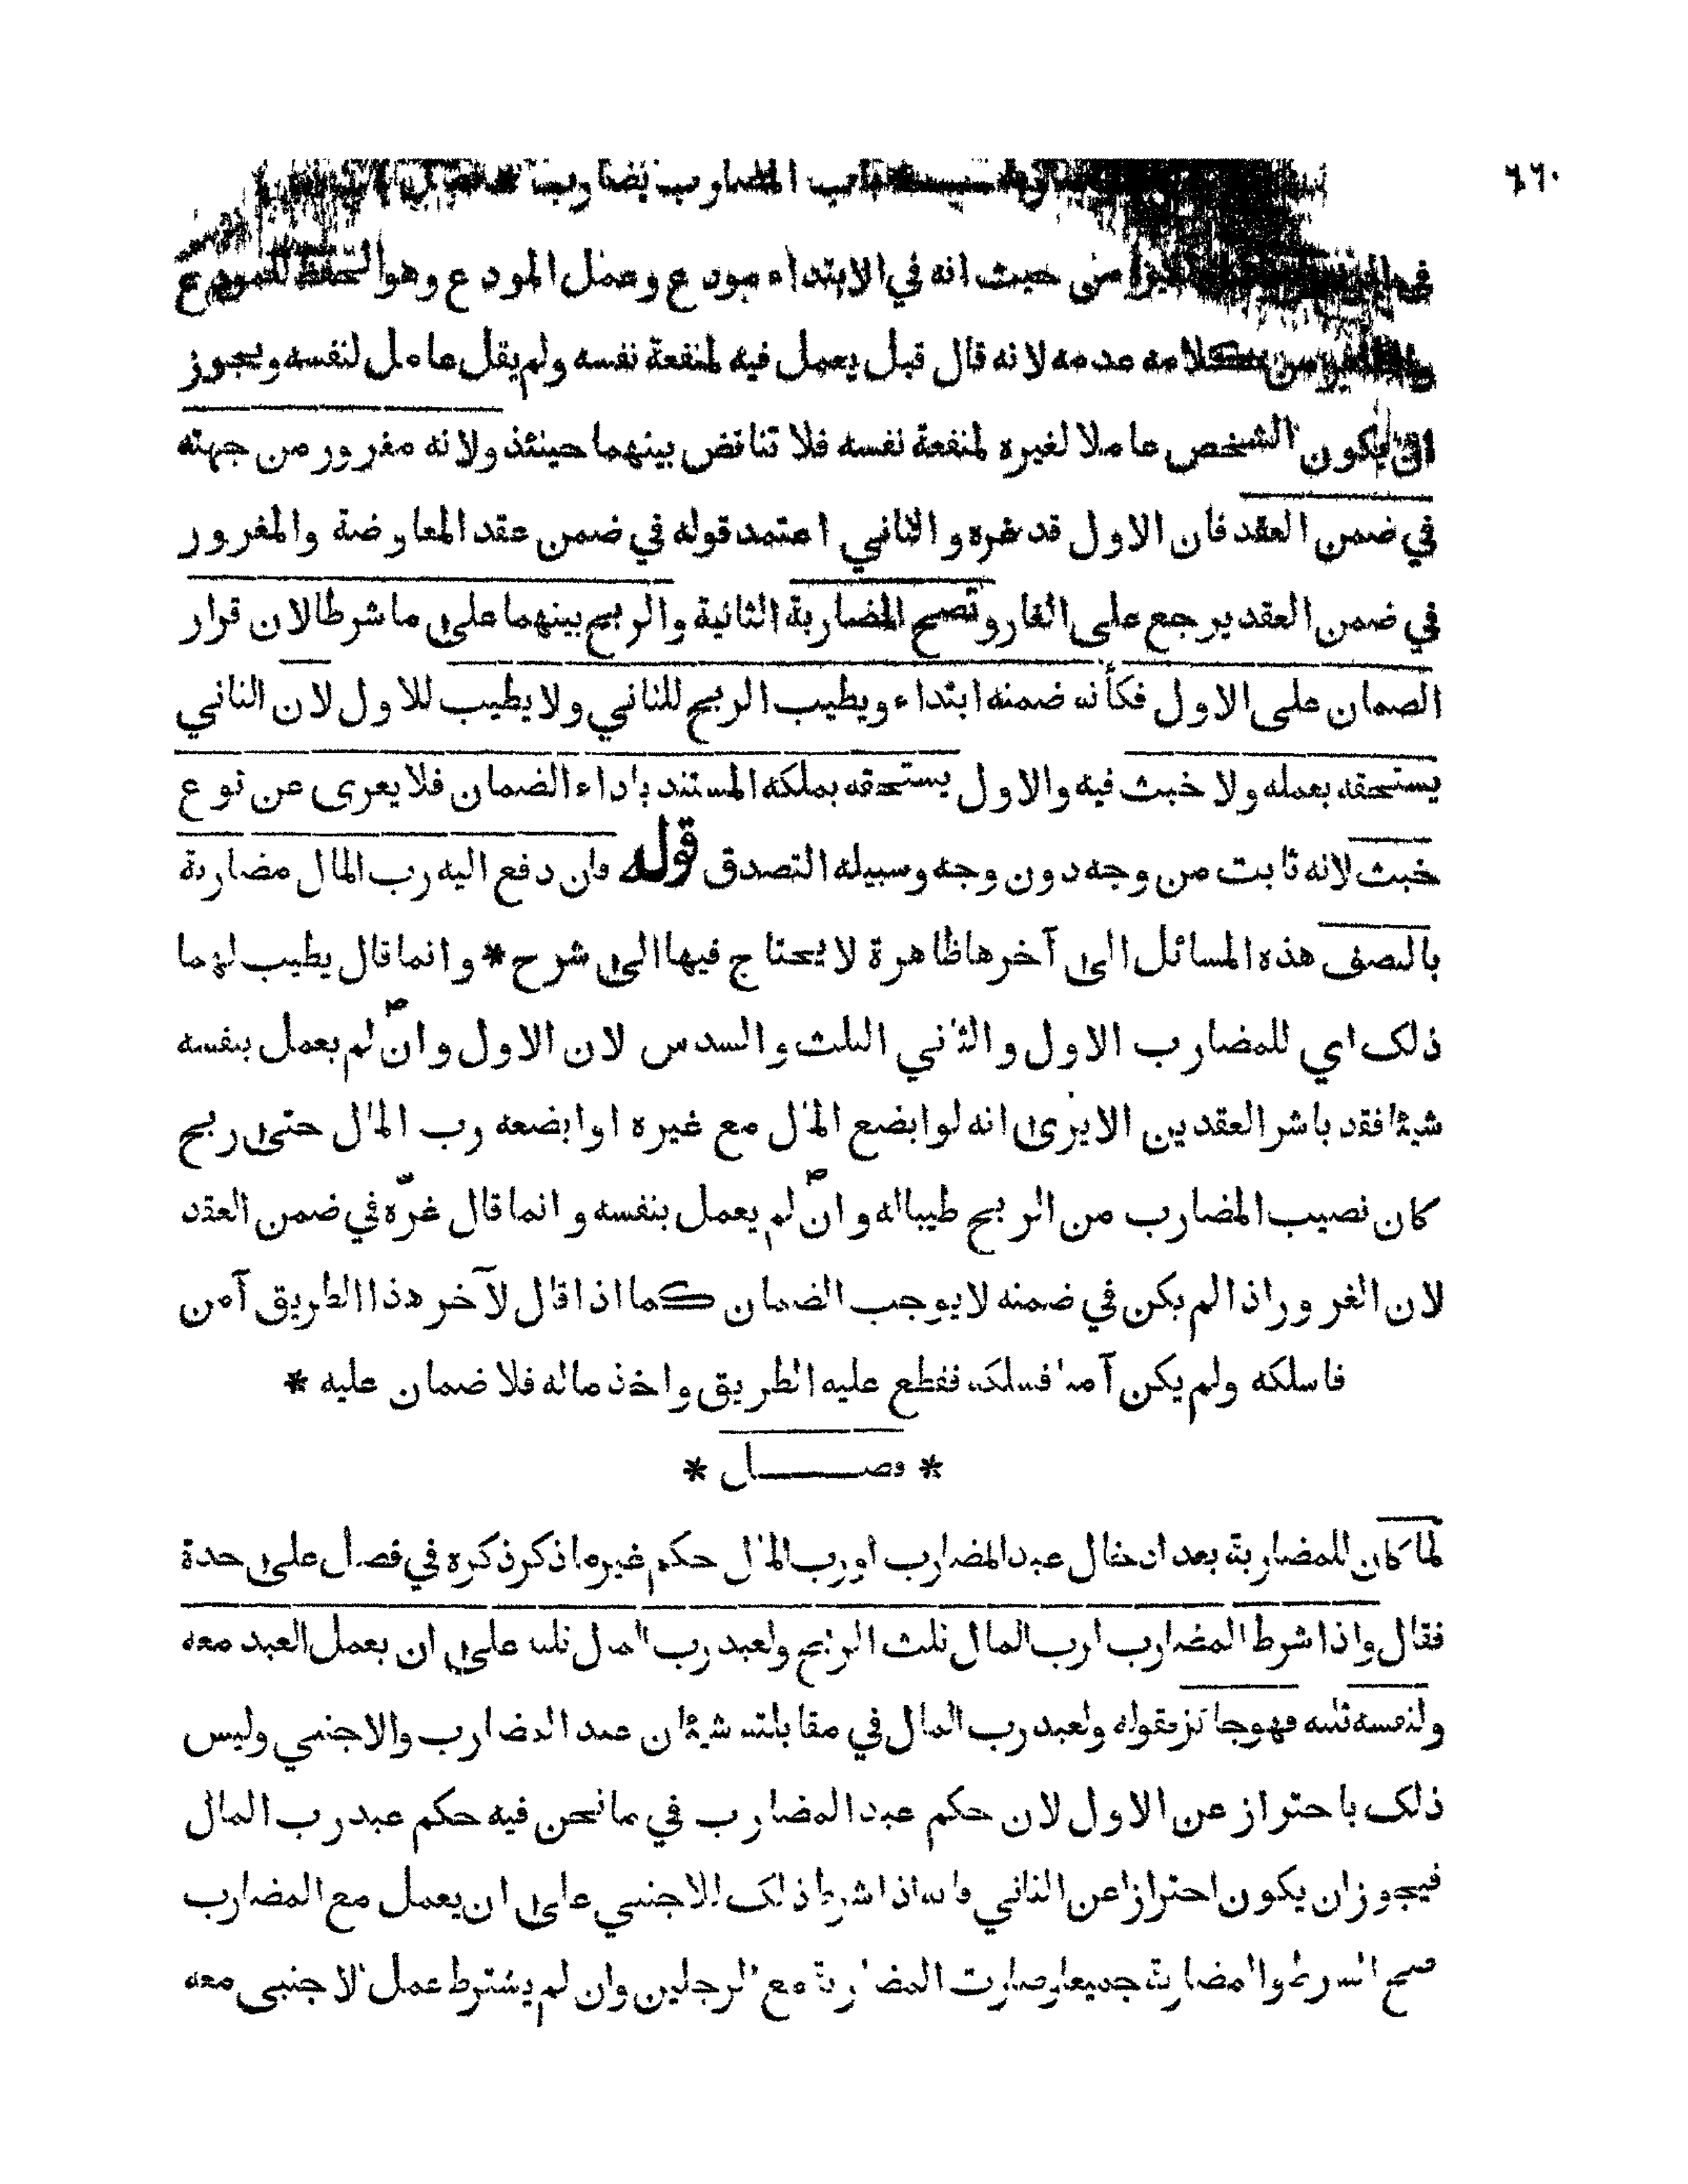 ٦٦٠
المضارب يضارب
في حيث انه في الابتداء مودع وعمل المودع وهو الحفظ للمودع
من كلامه عدمه لانه قال قبل يعمل فيه لمنفعة نفسه ولم يقل عامل لنفسه ويجوز
ان يكون الشخص عاملا لغيره لمنفعة نفسه فلا تناقض بينهما حينئذ ولانه مغرور من جهته
في ضمن العقد فان الاول قد غره والثاني اعتمد قوله في ضمن عقد المعاوضة والمغرور
في ضمن العقد يرجع على الغار وتصح المضاربة الثانية والربح بينهما على ما شرطا لان قرار
الضمان على الاول فكأنه ضمنه ابتداء ويطيب الربح للثاني ولا يطيب للاول لان الثاني
يستحقه بعمله ولا خبث فيه والاول يستحقه بملكه المستند باداء الضمان فلا يعرى عن نوع
خبث لانه ثابت من وجه دون وجه وسبيله التصدق قوله فان دفع اليه رب المال مضاربة
بالنصف هذه المسائل الى آخرها ظاهرة لا يحتاج فيها الى شرح * وانما قال يطيب لهما
ذلك اي للمضارب الاول والثاني الثلث والسدس لان الاول وان لم يعمل بنفسه
شيئا فقد باشر العقدين الا يرى انه لو ابضع المال مع غيره او ابضعه رب المال حتى ربح
كان نصيب المضارب من الربح طيبا له وان لم يعمل بنفسه وانما قال غرّه في ضمن العقد
لان الغرور اذا لم يكن في ضمنه لا يوجب الضمان كما اذا قال لآخر هذا الطريق آمن
فاسلكه ولم يكن آمنا فسلكه فقطع عليه الطريق واخذ ماله فلا ضمان عليه *
* فصـــــل *
لما كان للمضاربة بعد ادخال عبد المضارب او رب المال حكم غير ما ذكر ذكره في فصل على حدة
فقال واذا شرط المضارب لرب المال ثلث الربح ولعبد رب المال ثلثه على ان يعمل العبد معه
ولنفسه ثلثه فهو جائز فقوله ولعبد رب المال في مقابلته شيئان عبد المضارب والاجنبي وليس
ذلك باحتراز عن الاول لان حكم عبد المضارب في ما نحن فيه حكم عبد رب المال
فيجوز ان يكون احترازا عن الثاني فانه اذا شرط ذلك للاجنبي على ان يعمل مع المضارب
صح الشرط والمضاربة جميعا وصارت المضاربة مع الرجلين وان لم يشترط عمل الاجنبي معه